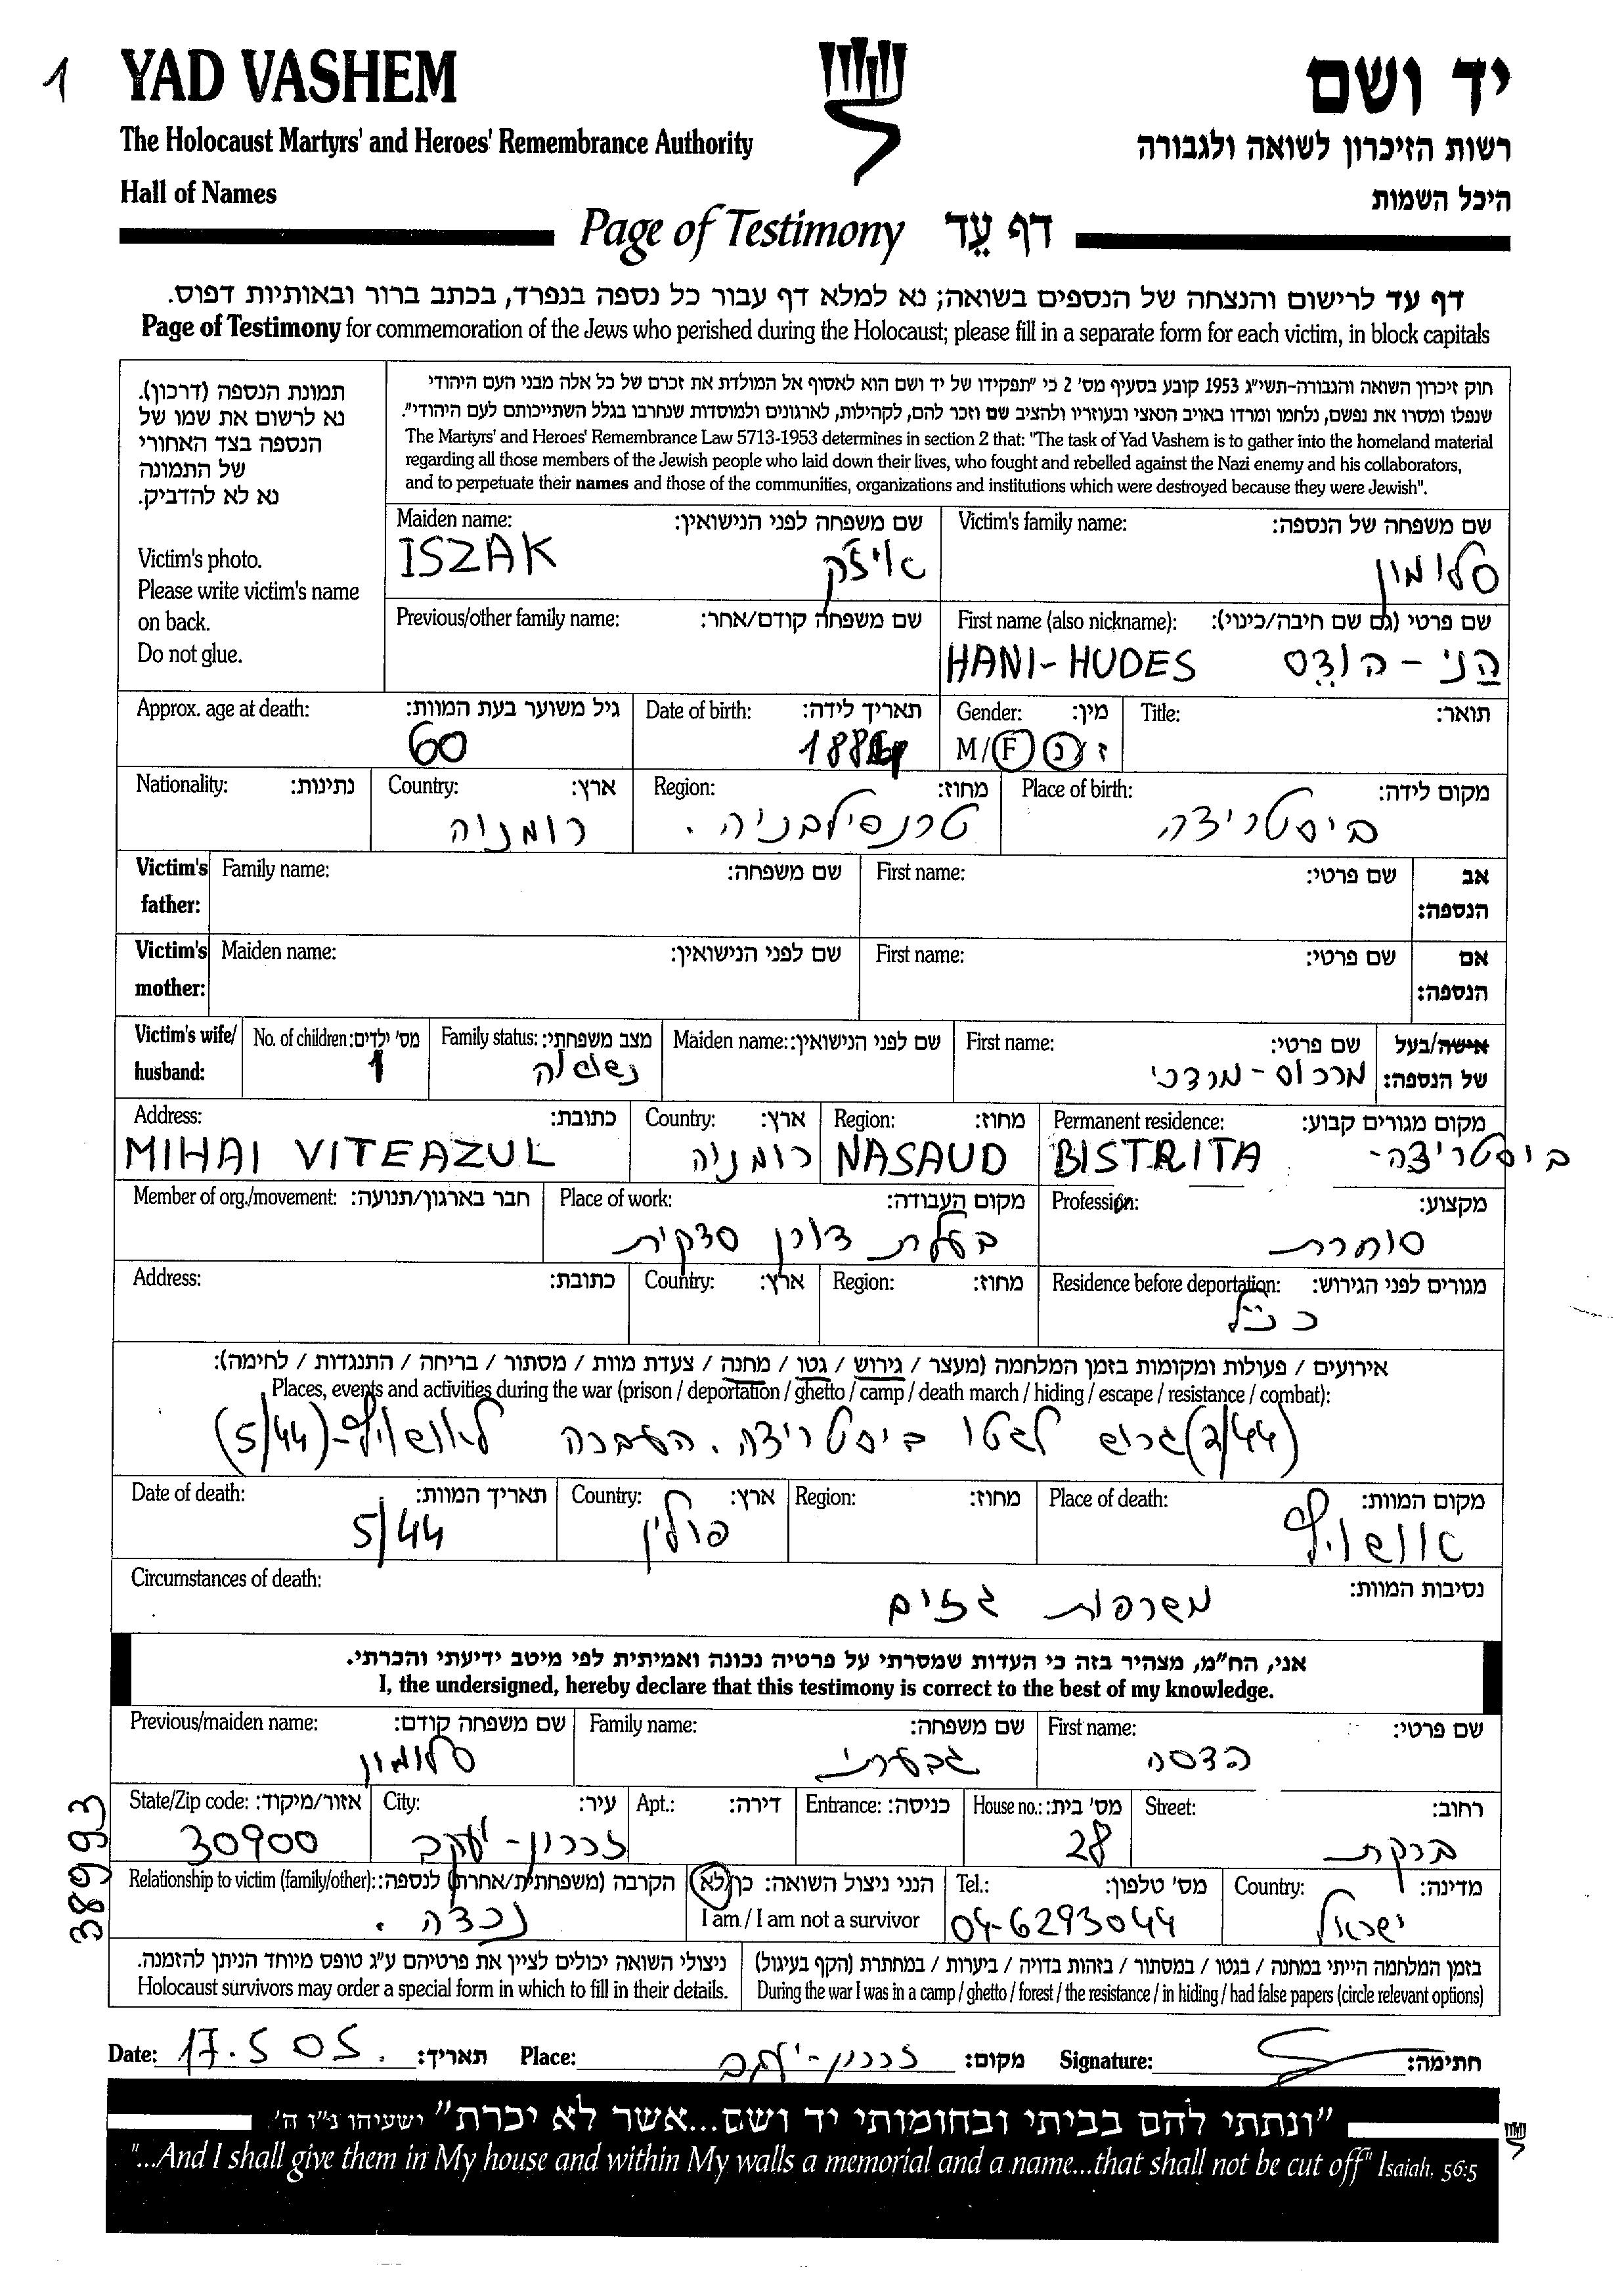 1
YAD VASHEM יד ושם
The Holocaust Martyrs' and Heroes' Remembrance Authority רשות הזיכרון לשואה ולגבורה
Hall of Names היכל השמות
Page of Testimony דף עֵד
דף עד לרישום והנצחה של הנספים בשואה; נא למלא דף עבור כל נספה בנפרד, בכתב ברור ובאותיות דפוס.
Page of Testimony for commemoration of the Jews who perished during the Holocaust; please fill in a separate form for each victim, in block capitals
תמונת הנספה (דרכון).
נא לרשום את שמו של
הנספה בצד האחורי
של התמונה
נא לא להדביק.
Victim's photo.
Please write victim's name
on back.
Do not glue.
חוק זיכרון השואה והגבורה-תשי"ג 1953 קובע בסעיף מס' 2 כי "תפקידו של יד ושם הוא לאסוף אל המולדת את זכרם של כל אלה מבני העם היהודי
שנפלו ומסרו את נפשם, נלחמו ומרדו באויב הנאצי ובעוזריו ולהציב שם וזכר להם, לקהילות, לארגונים ולמוסדות שנחרבו בגלל השתייכותם לעם היהודי".
The Martyrs' and Heroes' Remembrance Law 5713-1953 determines in section 2 that: "The task of Yad Vashem is to gather into the homeland material
regarding all those members of the Jewish people who laid down their lives, who fought and rebelled against the Nazi enemy and his collaborators,
and to perpetuate their names and those of the communities, organizations and institutions which were destroyed because they were Jewish".
Maiden name: שם משפחה לפני הנישואין: Victim's family name: שם משפחה של הנספה:
ISZAK איזק סלומון
Previous/other family name: שם משפחה קודם/אחר: First name (also nickname): שם פרטי (גם שם חיבה/כינוי):
HANI-HUDES הני - הודס
Approx. age at death: גיל משוער בעת המוות: Date of birth: תאריך לידה: Gender: מין: Title: תואר:
60 M/F ז/נ
Nationality: נתינות: Country: ארץ: Region: מחוז: Place of birth: מקום לידה:
רומניה טרנסילבניה. ביסטריצה
Victim's father: Family name: שם משפחה: First name: שם פרטי: אב הנספה:
Victim's mother: Maiden name: שם לפני הנישואין: First name: שם פרטי: אם הנספה:
Victim's wife/ No. of children: מס' ילדים: Family status: מצב משפחתי: Maiden name: שם לפני הנישואין: First name: שם פרטי: אישה/בעל
husband: 1 נשואה מרכוס-מרדכי של הנספה:
Address: כתובת: Country: ארץ: Region: מחוז: Permanent residence: מקום מגורים קבוע:
MIHAI VITEAZUL רומניה NASAUD BISTRITA ביסטריצה-
Member of org./movement: חבר בארגון/תנועה: Place of work: מקום העבודה: Profession: מקצוע:
בעלת דוכן סדקית סוחרת
Address: כתובת: Country: ארץ: Region: מחוז: Residence before deportation: מגורים לפני הגירוש:
כנ"ל
אירועים / פעולות ומקומות בזמן המלחמה (מעצר / גירוש / גטו / מחנה / צעדת מוות / מסתור / בריחה / התנגדות / לחימה):
Places, events and activities during the war (prison / deportation / ghetto / camp / death march / hiding / escape / resistance / combat):
(2/44) גרוש לגטו ביסטריצה. העברה לאושויץ-(5/44)
Date of death: תאריך המוות: Country: ארץ: Region: מחוז: Place of death: מקום המוות:
5/44 פולין אושויץ
Circumstances of death: נסיבות המוות:
משרפות גזים
אני, הח"מ, מצהיר בזה כי העדות שמסרתי על פרטיה נכונה ואמיתית לפי מיטב ידיעתי והכרתי.
I, the undersigned, hereby declare that this testimony is correct to the best of my knowledge.
Previous/maiden name: שם משפחה קודם: Family name: שם משפחה: First name: שם פרטי:
סלומון גבעתי הדסה
State/Zip code: אזור/מיקוד: City: עיר: Apt.: דירה: Entrance: כניסה: House no.: מס' בית: Street: רחוב:
30900 זכרון-יעקב 28 ברקת
Relationship to victim (family/other): הקרבה (משפחתית/אחרת) לנספה: הנני ניצול השואה: כן/לא Tel.: מס' טלפון: Country: מדינה:
נכדה. I am / I am not a survivor 04-6293044 ישראל
389993
ניצולי השואה יכולים לציין את פרטיהם ע"ג טופס מיוחד הניתן להזמנה. בזמן המלחמה הייתי במחנה / בגטו / במסתור / בזהות בדויה / ביערות / במחתרת (הקף בעיגול)
Holocaust survivors may order a special form in which to fill in their details. During the war I was in a camp / ghetto / forest / the resistance / in hiding / had false papers (circle relevant options)
Date: 17.5 05. תאריך: Place: זכרון-יעקב מקום: Signature: חתימה:
"ונתתי להם בביתי ובחומותי יד ושם...אשר לא יכרת" ישעיהו נ"ו ה'.
"...And I shall give them in My house and within My walls a memorial and a name...that shall not be cut off" Isaiah, 56:5